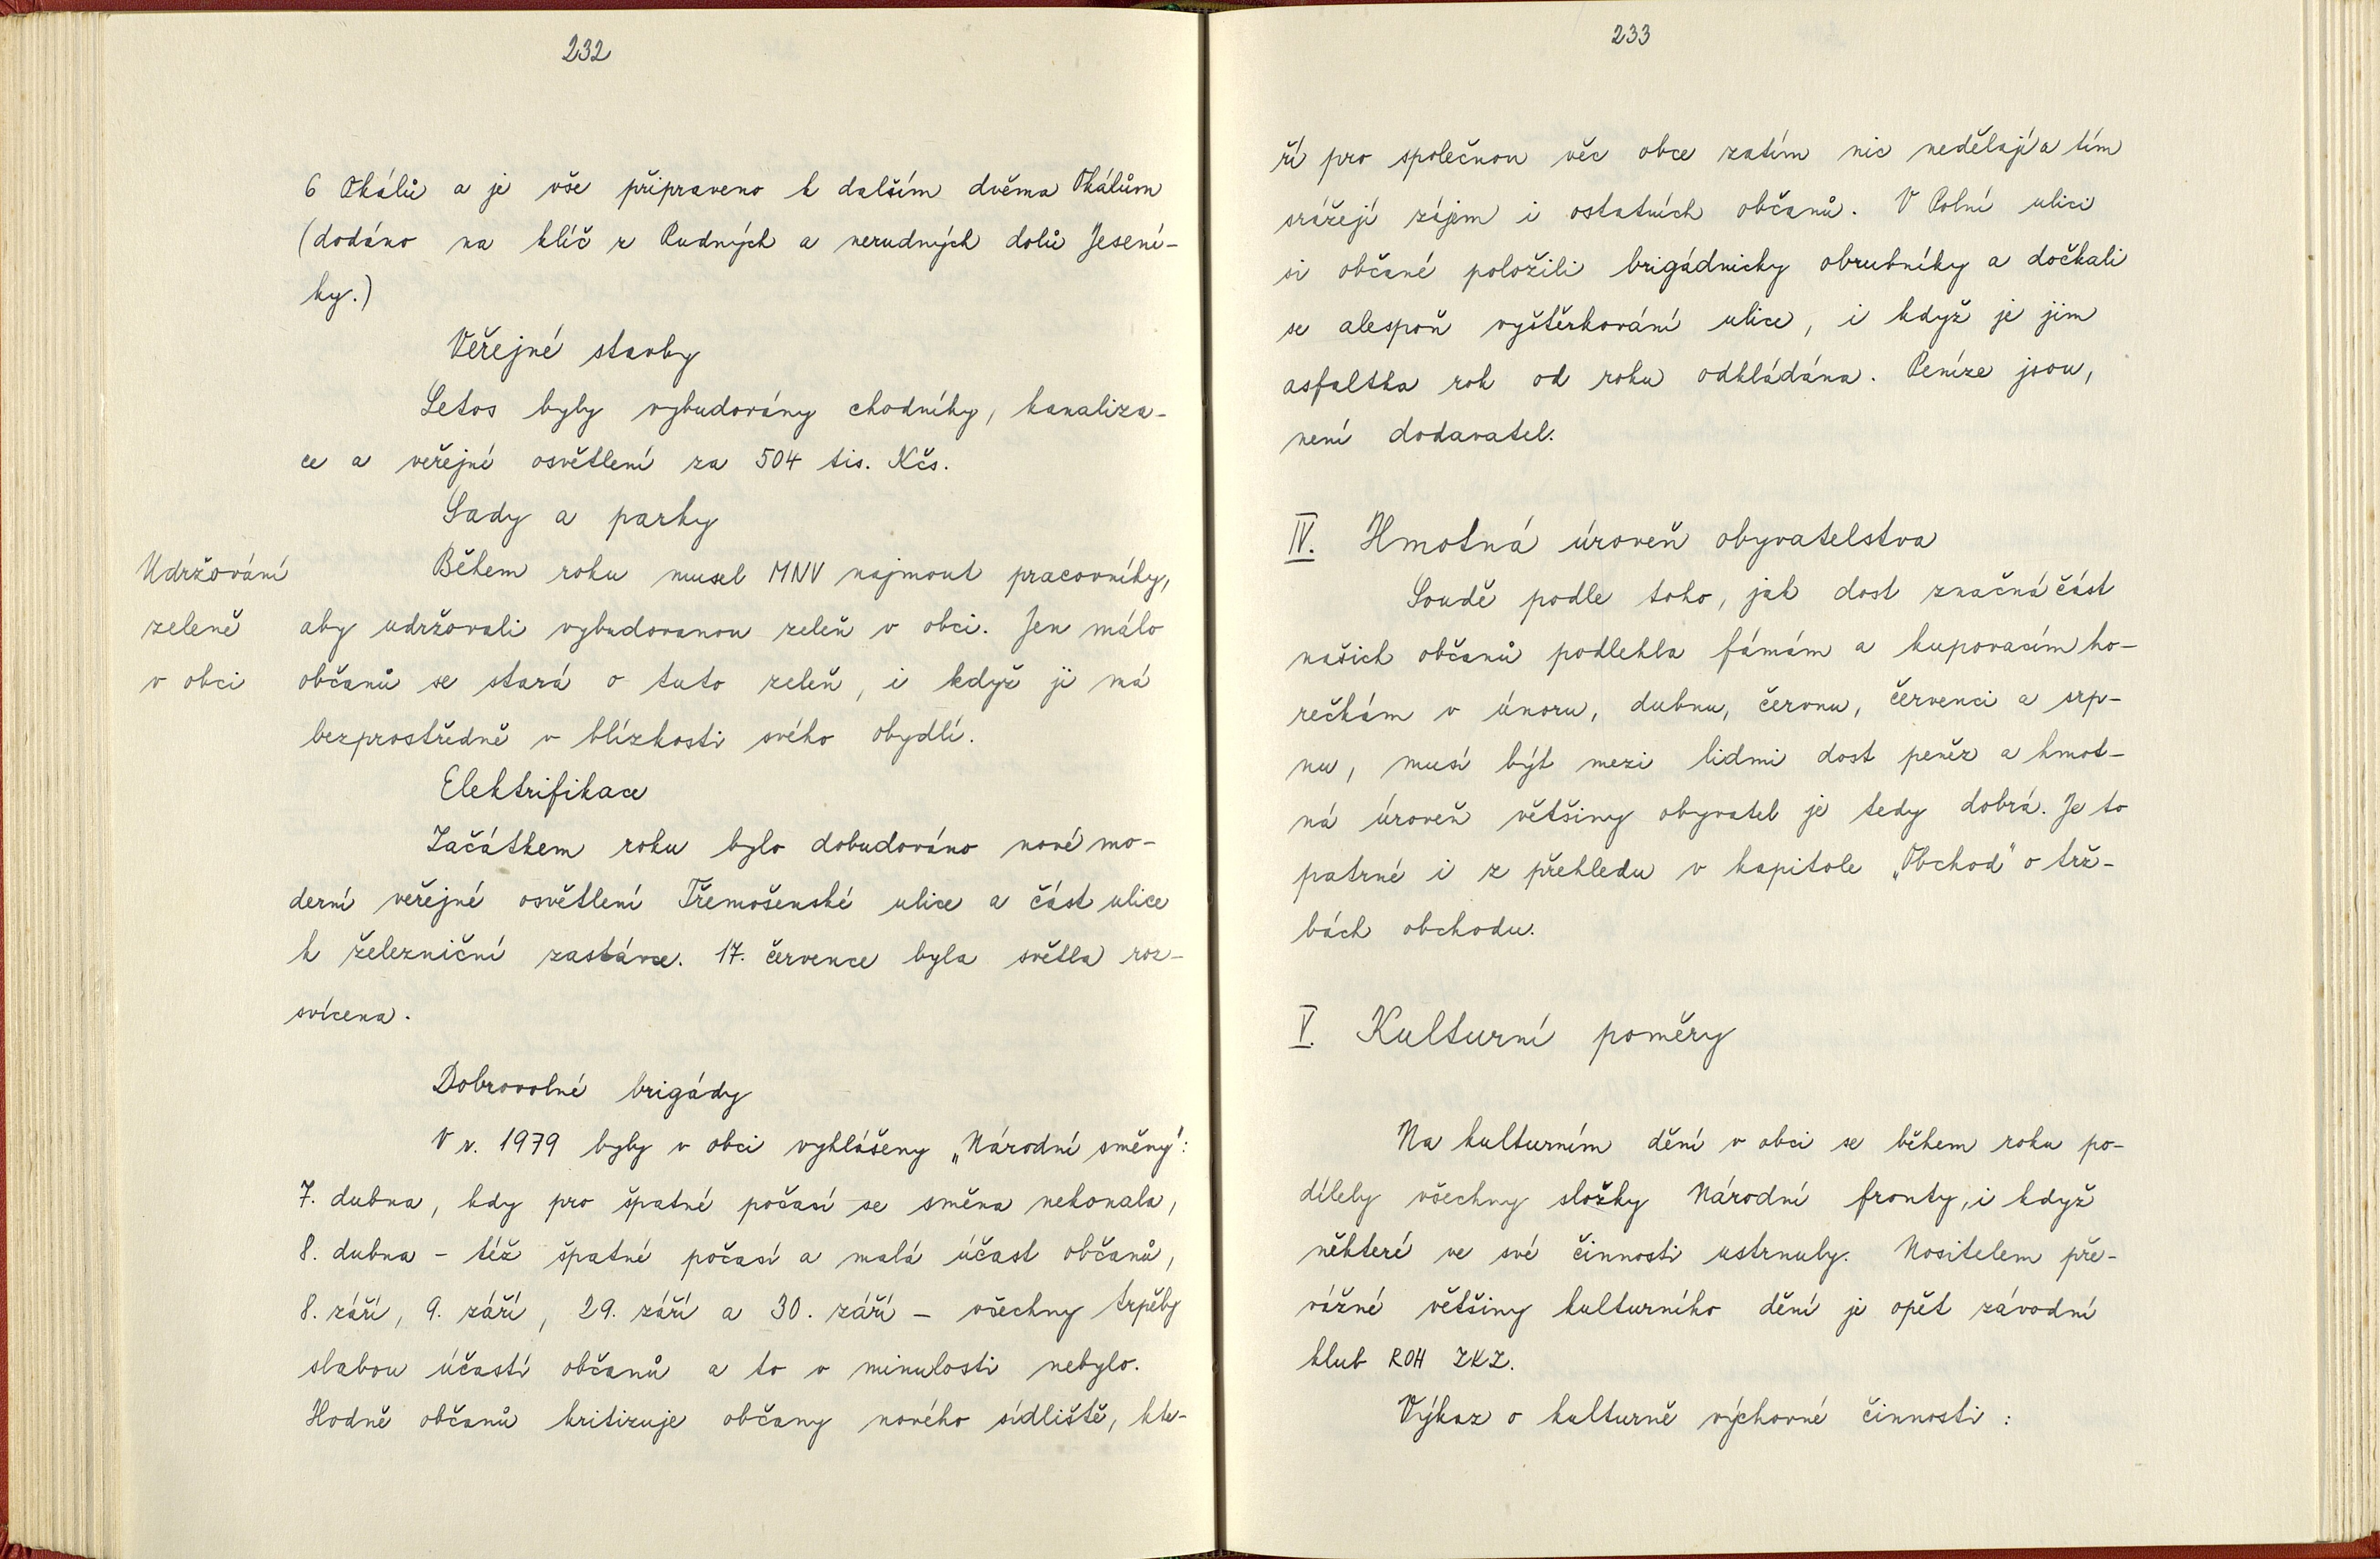 232
6 Okálů a je vše připraveno k dalším dvěma Okálům
(dodáno na klíč z Rudných a nerudných dolů Jesení-
ky.)
Veřejné stavby
Letos byly vybudovány chodníky, kanaliza-
ce a veřejné osvětlení za 504 tis. Kčs.
Sady a parky
Udržování
zeleně
v obci
Během roku musel MNV najmout pracovníky,
aby udržovali vybudovanou zeleň v obci. Jen málo
občanů se stará o tuto zeleň, i když ji má
bezprostředně v blízkosti svého obydlí.
Elektrifikace
Začátkem roku bylo dobudováno nové mo-
derní veřejné osvětlení Třemošenské ulice a část ulice
k železniční zastávce. 17. července byla světla roz-
svícena.
Dobrovolné brigády
V r. 1979 byly v obci vyhlášeny „Národní směny":
7. dubna, kdy pro špatné počasí se směna nekonala,
8. dubna - též špatné počasí a malá účast občanů,
8. září, 9. září, 29. září a 30. září - všechny trpěly
slabou účastí občanů a to v minulosti nebylo.
Hodně občanů kritizuje občany nového sídliště, kte-
233
ří pro společnou věc obce zatím nic nedělají a tím
srážejí zájem i ostatních občanů. V Polní ulici
si občané položili brigádnicky obrubníky a dočkali
se alespoň vyštěrkování ulice, i když je jim
asfaltka rok od roku odkládána. Peníze jsou,
není dodavatel.
IV. Hmotná úroveň obyvatelstva
Soudě podle toho, jak dost značná část
našich občanů podlehla fámám a kupovacím ho-
rečkám v únoru, dubnu, červnu, červenci a srp-
nu, musí být mezi lidmi dost peněz a hmot-
ná úroveň většiny obyvatel je tedy dobrá. Je to
patrné i z přehledu v kapitole „Obchod" o trž-
bách obchodu.
V. Kulturní poměry
Na kulturním dění v obci se během roku po-
dílely všechny složky Národní fronty, i když
některé ve své činnosti ustrnuly. Nositelem pře-
vážné většiny kulturního dění je opět závodní
klub ROH ZKZ.
Výkaz o kulturně výchovné činnosti: